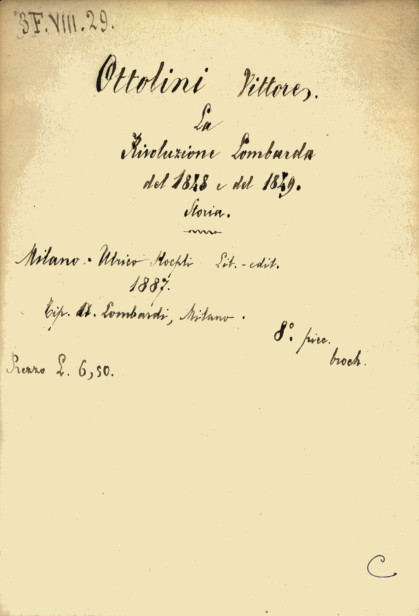 3F.VIII.29.
Ottolini Vittore.
La
Rivoluzione Lombarda
del 1848 e del 1849.
Storia.
Milano. Ulrico Hoepli Lit.-edit.
1887.
Tip. A. Lombardi, Milano.
8º. picc.
broch.
Prezzo L. 6,50.
C